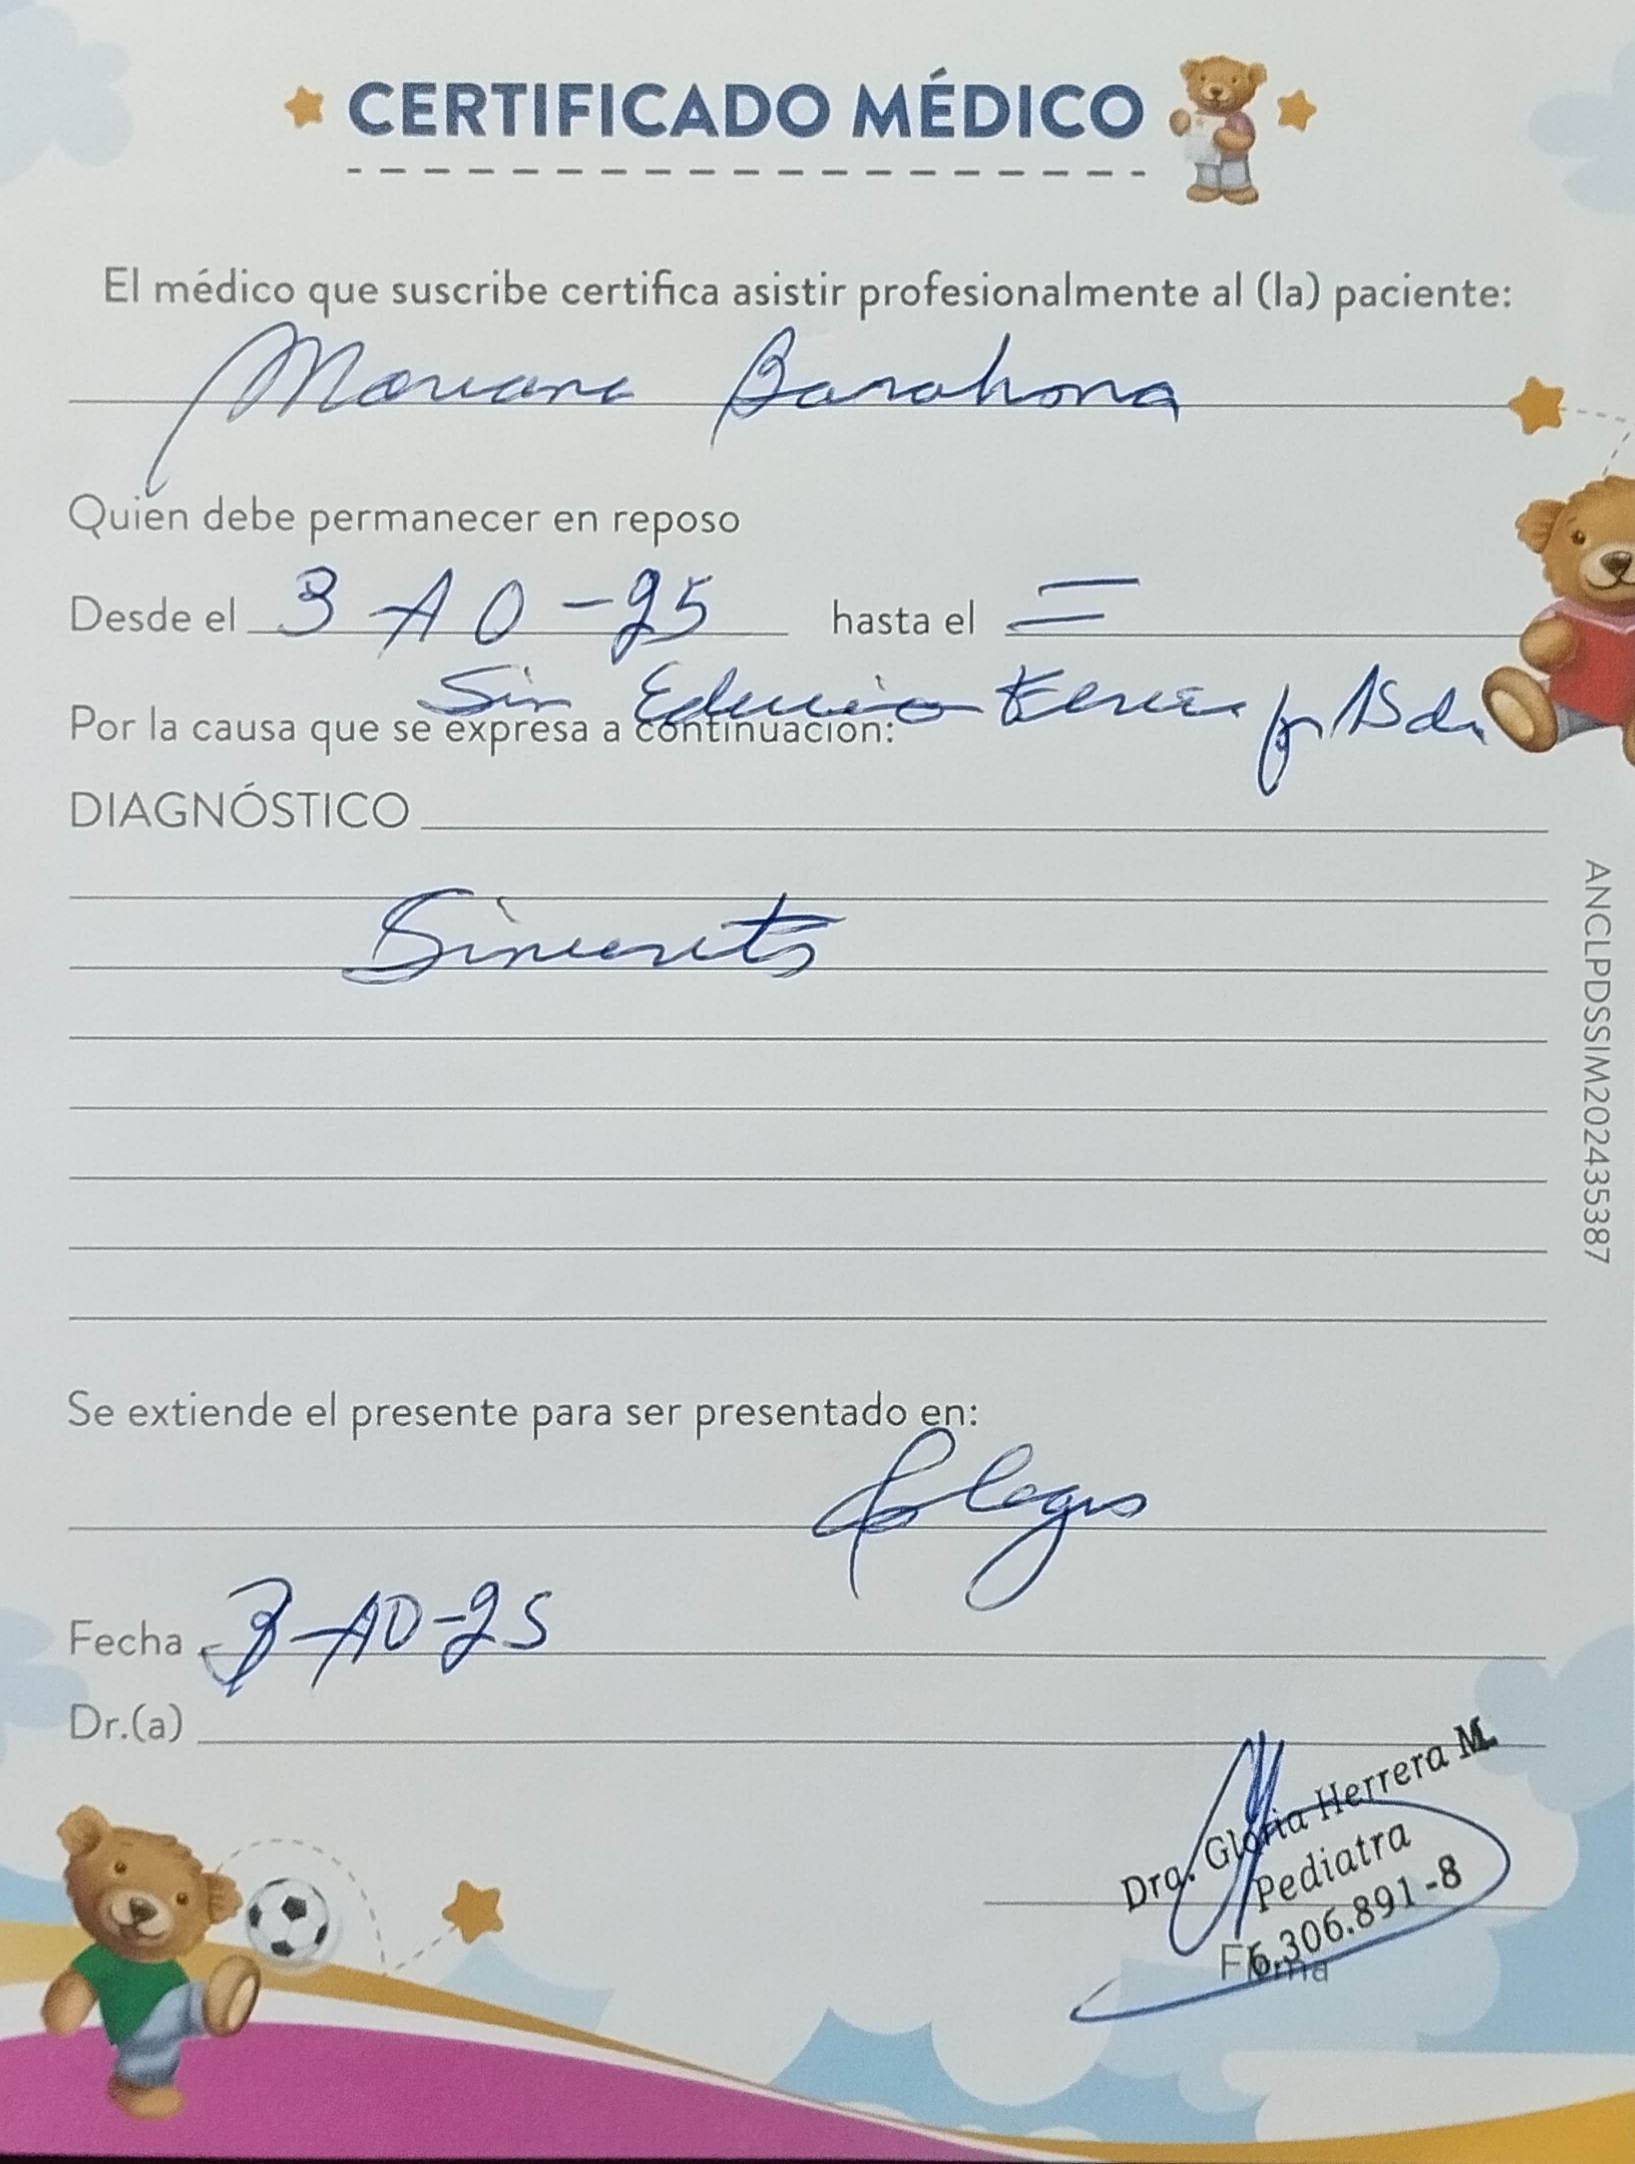 CERTIFICADO MÉDICO
El médico que suscribe certifica asistir profesionalmente al (la) paciente:
Mariana Barahona
Quien debe permanecer en reposo
Desde el 3-10-25 hasta el =
Sin Educación física por 15 d.
Por la causa que se expresa a continuación:
DIAGNÓSTICO
Sinusitis
Se extiende el presente para ser presentado en:
Colegio
Fecha 3-10-25
Dr.(a)
Dra. Gloria Herrera M.
Pediatra
6.306.891-8
Firma
ANCLPDSSIM202435387